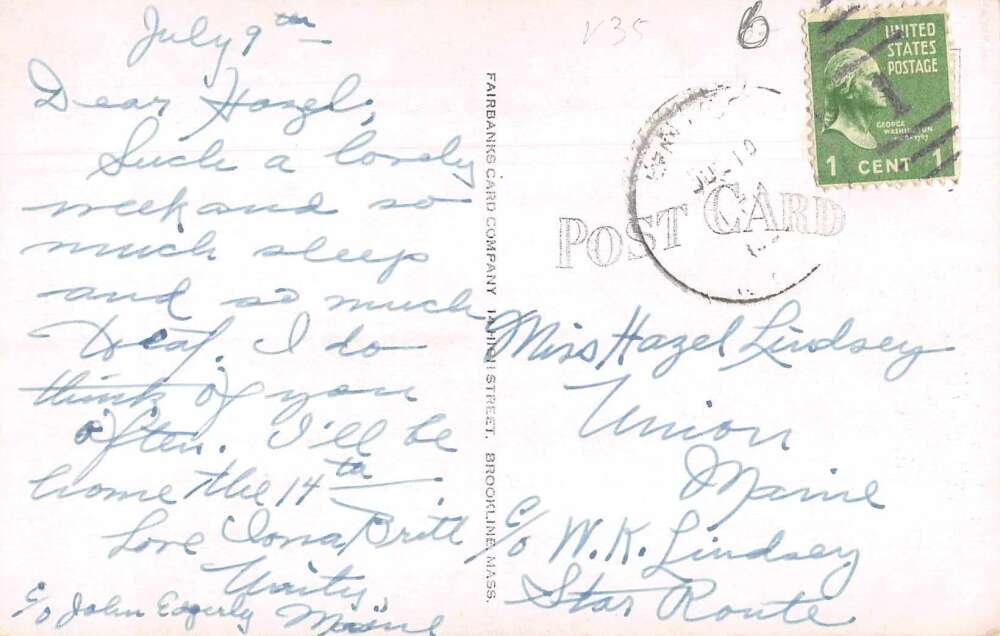 July 9th
Dear Hazel,
Such a lovely
week and so
much sleep
and so much
I do
think of you
often. I'll be
home the 14th.
Love Iona Britt
Unity,
c/o John Edgerly Maine
FAIRBANKS CARD COMPANY HIGH STREET. BROOKLINE, MASS.
V35
6
UNITED
STATES
POSTAGE
GEORGE
WASHINGTON
1 CENT 1
10
POST CARD
Miss Hazel Lindsey
Union
Maine
c/o W. K. Lindsey
Star Route